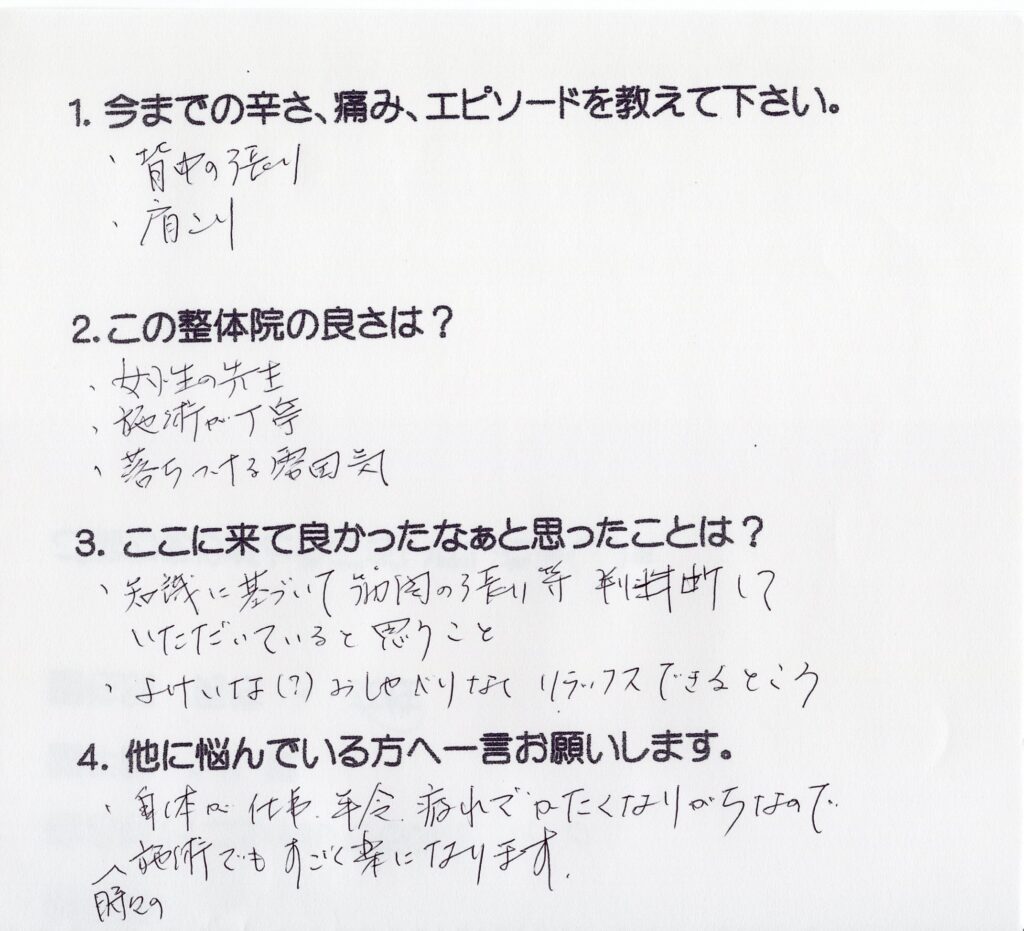 1. 今までの辛さ、痛み、エピソードを教えて下さい。
・背中の張り
・肩こり
2.この整体院の良さは？
・女性の先生
・施術が丁寧
・落ちつける雰囲気
3. ここに来て良かったなぁと思ったことは？
・知識に基づいて筋肉の張り等 判断して
いただいていると思うこと
・よけいな(?)おしゃべりなく リラックスできるところ
4. 他に悩んでいる方へ一言お願いします。
・身体が仕事.年令.疲れでかたくなりがちなので
施術でもすごく楽になります.
時々の